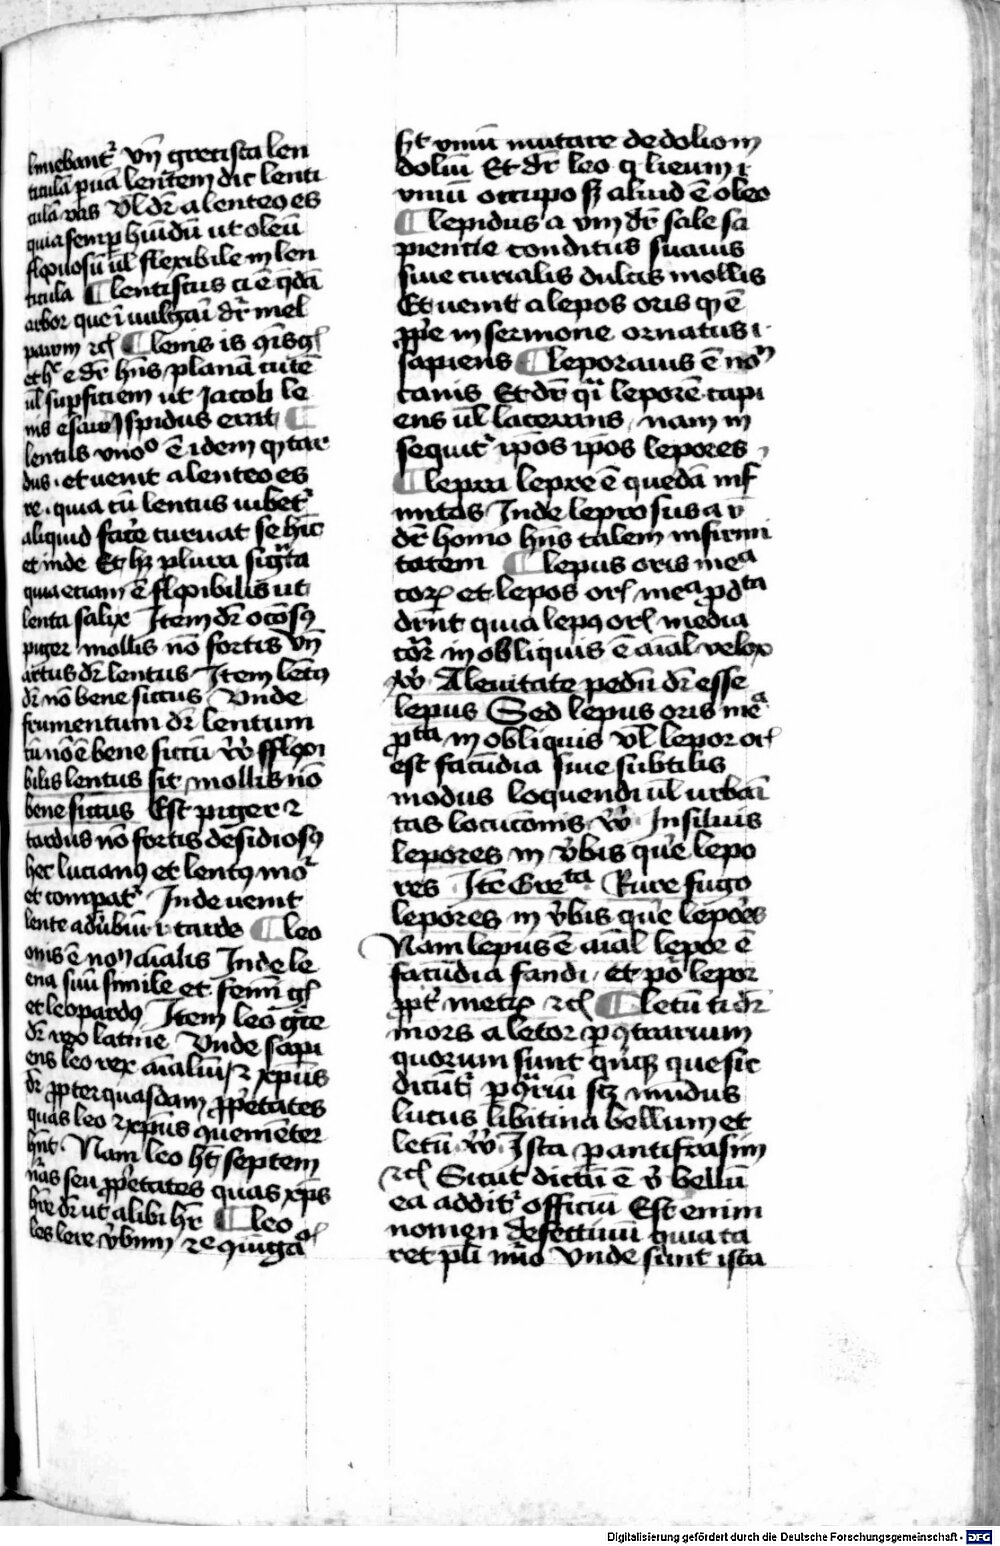 liniebant᷑ Vn̄ grecista len
ticulā puā lentem dic lenti
culā vas Vl dr̄ a lenteo es
quia semp̲ hūidū ut oleū
flexuosū ul̄ flexibile in len
ticula ¶ lentiscus ci ē q̄dā
arbor que ī vulgari dr̄ mel
baum rc̄ ¶ lenis is
et h̄ e dr̄ hn̄s planā cutē
ul̄ sup̲ficiem ut Jacob le
nis esau Ispidus erat ¶
lentus ē idem q̄ tar
dus · et uenit a lenteo es
re · quia cū lentus iubet᷑
aliquid facē curuat se
et inde Et hȝ plura sigͣta
quia etiam ē flexibilis ut
lenta salix Item dr̄ ocōsꝯ
piger mollis nō fortis Vn̄
actus dr̄ lentus Item lētꝯ
dr̄ nō bene siccus Vnde
frumentum dr̄ lentum
cū nō ē bene siccū v̄ fflexi
bilis lentus sit mollis nō
bene siccus Est piger ⁊
tardus nō fortis desidiosꝯ
hec lucianꝯ et lentꝯ
et compat᷑ Inde uenit
lente adūbiū ·i· tarde ¶ leo
onis ē noᷠ aīalis Inde le
ena suū simile et
et leopardꝯ Item leo gͬce
dr̄ rex latine Vnde sapi
ens leo rex aīaliū ⁊ xp̄us
dr̄ ꝓpter quasdam ꝓp̄etates
quas leo ⁊ xp̄us
hn̄t · Nam leo hȝ septem
nās seu ꝓp̄etates quas xp̄s
hr̄e dr̄ ut alibi hr̄ ¶ leo
les lere v̄bum
st vinū mutare de dolio in
doliū Et dr̄ leo q̄ lieum ·i·
vinū occupo sȝ aliud ē oleo
¶ lepidus a um dr̄ sale sa
piencie conditus suauis
siue curialis dulcis mollis
Et uenit a lepos oris q̄ ē
ꝓp̄e in sermone ornatus ·i·
sapiens ¶ leporarius ē noᷠ
canis Et dr̄ qi leporē capi
ens ul̄ lacerans · nam in
sequit᷑ ip̄os ip̄os lepores
¶ lepra lepre ē quedā inf
mitas Inde leprosus a ū
dr̄ homo hn̄s talem infirmi
tatem ¶ lepus oris meͣ
cor̄ et lepos or᷑ meͣ p̲dͭͣ
drn̄t quia lepꝯ or᷑ media
cor̄ in obliquis ē aīal velox
v̄ A leuitate pedū dr̄ esse
lepus Sed lepus oris mēͣ
p̲ͭͣ in obliquis vl̄ lepor or᷑
est facūdia siue subtilis
modus loquendi ul̄ urbāi
tas locucōnis v̄ In siluis
lepores in v̄bis quē lepo
res Itē Greͭͣ Rure fugo
lepores in v̄bis quē lepōres
Nam lepus ē aīal lepor ē
facūdia fandi · et pō lepor
ꝓpt᷑ metrū rc̄ ¶ letū ti dr̄
mors a letor p̲ ꝯtrarium
quorum sunt que sic
dicūt᷑ p̲ ꝯͬriū scȝ mūdus
lucus libitina bellum et
letū v̄ Ista p̲ antifrasim
rc̄ Sicut dictū ē v̄ bellū
ea addit᷑ officiū Est enim
nomen defectiuū quia ca
ret pl̄i nūo Vnde sunt ista
Digitalisierung gefördert durch die Deutsche Forschungsgemeinschaft - DFG